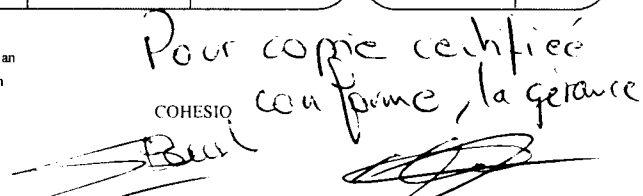 an
Pour copie certifiée
conforme, la gérance
COHESIO